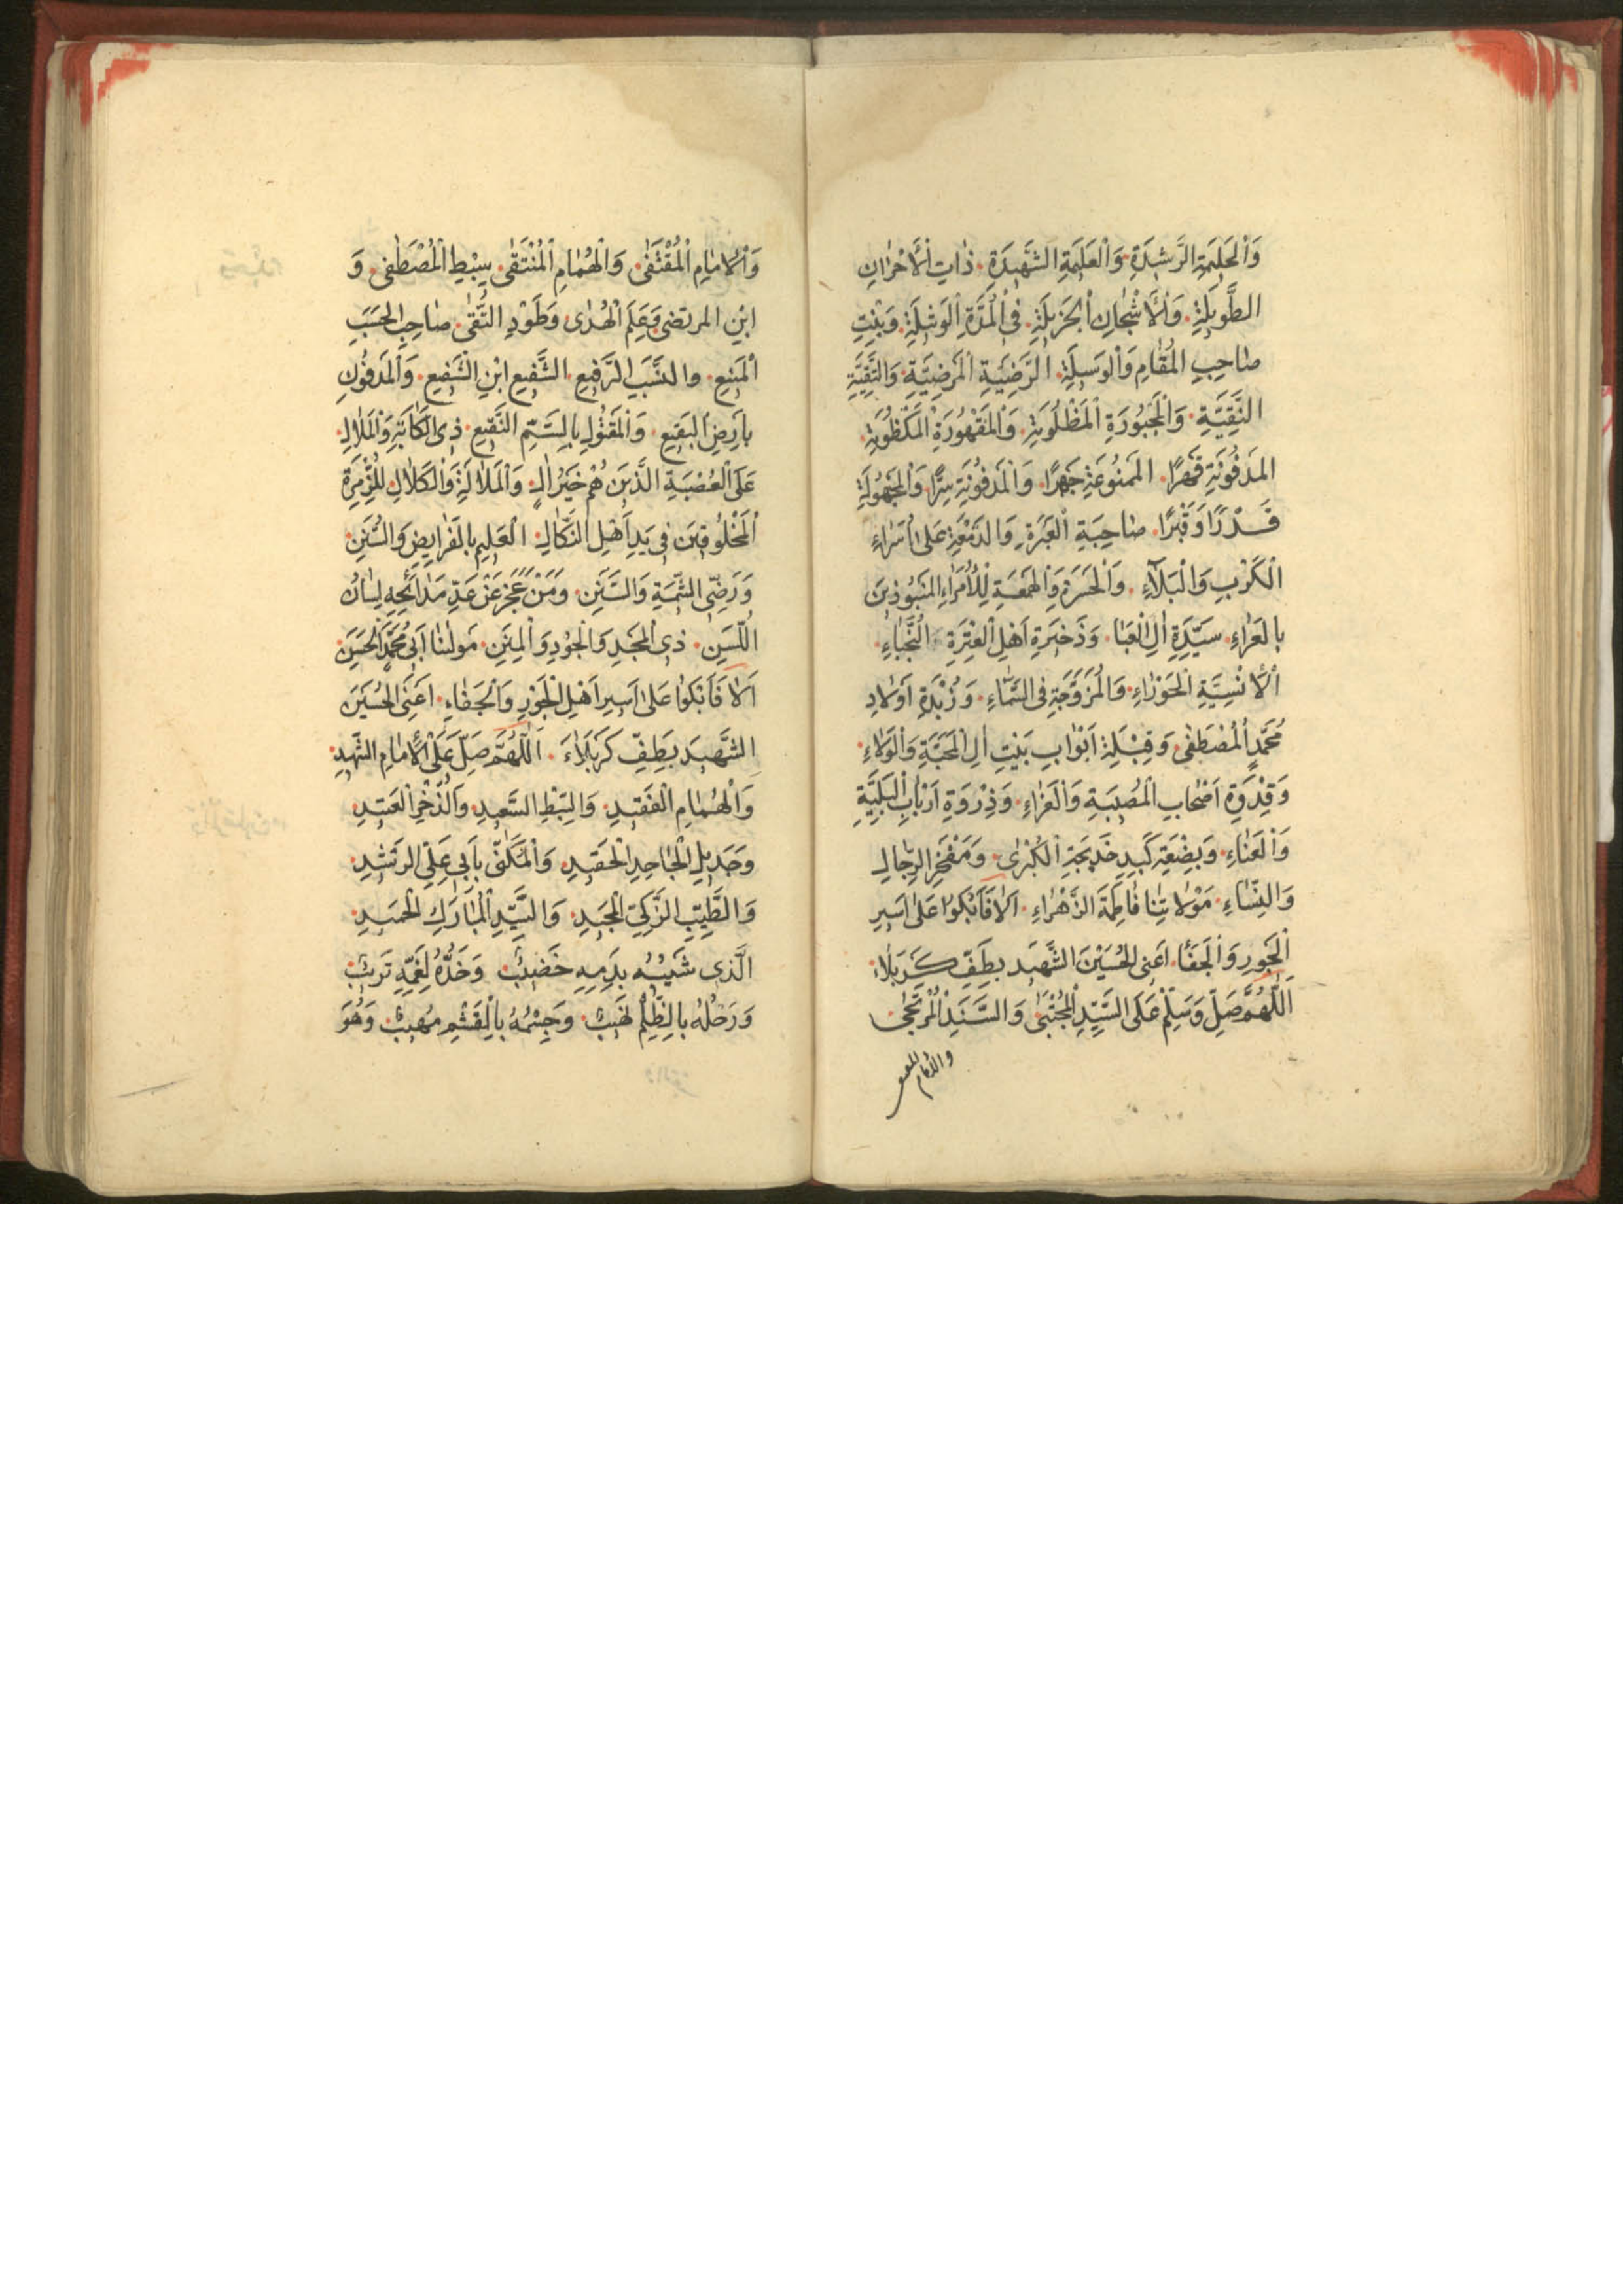 وَالْحَلِيمَةِ الرَّشِيدَةِ وَالْعَلِيمَةِ الشَّهِيدَةِ ذَاتِ الْأَحْزَانِ
الطَّوِيلَةِ وَالْأَشْجَانِ الْجَزِيلَةِ فِي الْمُدَّةِ الْوَشِلَةِ وَبِنْتِ
صَاحِبِ الْمَقَامِ وَالْوَسِيلَةِ الرَّضِيَّةِ الْمَرْضِيَّةِ وَالتَّقِيَّةِ
النَّقِيَّةِ وَالْمَجْبُورَةِ الْمَظْلُومَةِ وَالْمَقْهُورَةِ الْمَكْظُومَةِ
الْمَدْفُونَةِ قَهْرًا الْمَمْنُوعَةِ جَهْرًا وَالْمَدْفُونَةِ سِرًّا وَالْمَجْهُولَةِ
قَدْرًا وَقَبْرًا صَاحِبَةِ الْعَبْرَةِ وَالدَّمْعَةِ عَلَى أُسَرَاءِ
الْكَرْبِ وَالْبَلَاءِ وَالْحَسْرَةِ وَالْهَمْعَةِ لِلْأُمَرَاءِ الْمَنْبُوذِينَ
بِالْعَرَاءِ سَيِّدَةِ آلِ الْعَبَا وَذَخِيرَةِ أَهْلِ الْعِتْرَةِ النُّجَبَاءِ
الْإِنْسِيَّةِ الْحَوْرَاءِ وَالْمُزَوَّجَةِ فِي السَّمَاءِ وَزُبْدَةِ أَوْلَادِ
مُحَمَّدٍ الْمُصْطَفَى وَقِبْلَةِ أَبْوَابِ بَيْتِ آلِ الْمَحَبَّةِ وَالْوَلَاءِ
وَقِدْوَةِ أَصْحَابِ الْمُصِيبَةِ وَالْعَزَاءِ وَذِرْوَةِ أَرْبَابِ الْبَلِيَّةِ
وَالْعَنَاءِ وَبِضْعَةِ كَبِدِ خَدِيجَةِ الْكُبْرَى وَمَفْخَرِ الرِّجَالِ
وَالنِّسَاءِ مَوْلَاتِنَا فَاطِمَةَ الزَّهْرَاءِ أَلَا فَابْكُوا عَلَى أَسِيرِ
الْجَوْرِ وَالْجَفَا أَعْنِي الْحُسَيْنَ الشَّهِيدَ بِطَفِّ كَرْبَلَاءَ
اَللّٰهُمَّ صَلِّ وَسَلِّمْ عَلَى السَّيِّدِ الْمُجْتَبَى وَالسَّنَدِ الْمُرْتَجَى
والامام المقتفى
وَالْإِمَامِ الْمُقْتَفَى وَالْهُمَامِ الْمُنْتَقَى سِبْطِ الْمُصْطَفَى وَ
ابْنِ الْمُرْتَضَى وَعَلَمِ الْهُدَى وَطَوْدِ التُّقَى صَاحِبِ الْحَسَبِ
الْمَنِيعِ وَالنَّسَبِ الرَّفِيعِ الشَّفِيعِ ابْنِ الشَّفِيعِ وَالْمَدْفُونِ
بِأَرْضِ الْبَقِيعِ وَالْمَقْتُولِ بِالسَّمِّ النَّقِيعِ ذِي الْكَآبَةِ وَالْمَلَالِ
عَلَى الْعُصْبَةِ الَّذِينَ هُمْ خَيْرُ آلٍ وَالْمَلَالَةِ وَالْكَلَالِ لِلزُّمْرَةِ
الْمَخْلُوقِينَ فِي يَدِ أَهْلِ النَّكَالِ الْعَلِيمِ بِالْفَرَايِضِ وَالسُّنَنِ
وَرَضِيِّ الشِّيمَةِ وَالسَّنَنِ وَمَنْ عَجَزَ عَنْ عَدِّ مَدَائِحِهِ لِسَانُ
اللَّسِنِ ذِي الْمَجْدِ وَالْجُودِ وَالْمِنَنِ مَوْلٰنَا أَبِي مُحَمَّدٍ الْحَسَنِ
أَلَا فَابْكُوا عَلَى أَسِيرِ أَهْلِ الْجَوْرِ وَالْجَفَاءِ أَعْنِي الْحُسَيْنَ
الشَّهِيدَ بِطَفِّ كَرْبَلَاءَ اَللّٰهُمَّ صَلِّ عَلَى الْإِمَامِ الشَّهِيدِ
وَالْهُمَامِ الْفَقِيدِ وَالسِّبْطِ السَّعِيدِ وَالذُّخْرِ الْعَتِيدِ
وَجَدِيلِ الْجَاحِدِ الْحَقِيدِ وَالْمُكَنَّى بِأَبِي عَلِيٍّ الرَّشِيدِ
وَالطَّيِّبِ الزَّكِيِّ الْمَجِيدِ وَالسَّيِّدِ الْمُبَارَكِ الْحَمِيدِ
الَّذِي شَيْبُهُ بِدَمِهِ خَضِيبٌ وَخَدُّهُ لِغَمِّهِ تَرِيبٌ
وَرَحْلُهُ بِالظُّلْمِ نَهِيبٌ وَجِسْمُهُ بِالْقَشْمِ مُهِيبٌ وَهُوَ